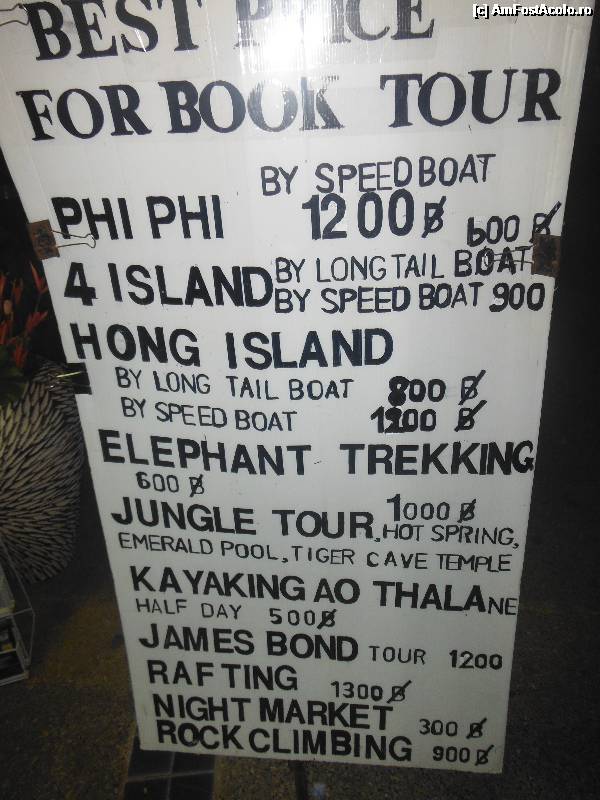 [c] AmFostAcolo.ro
BEST PRICE
FOR BOOK TOUR
BY SPEEDBOAT
PHI PHI 1200 ฿ 600 ฿
4 ISLAND BY LONG TAIL BOAT
BY SPEED BOAT 900
HONG ISLAND
BY LONG TAIL BOAT 800 ฿
BY SPEED BOAT 1200 ฿
ELEPHANT TREKKING
600 ฿
1000 ฿
JUNGLE TOUR, HOT SPRING,
EMERALD POOL, TIGER CAVE TEMPLE
KAYAKING AO THALANE
HALF DAY 500฿
JAMES BOND TOUR 1200
RAFTING 1300 ฿
NIGHT MARKET 300 ฿
ROCK CLIMBING 900 ฿